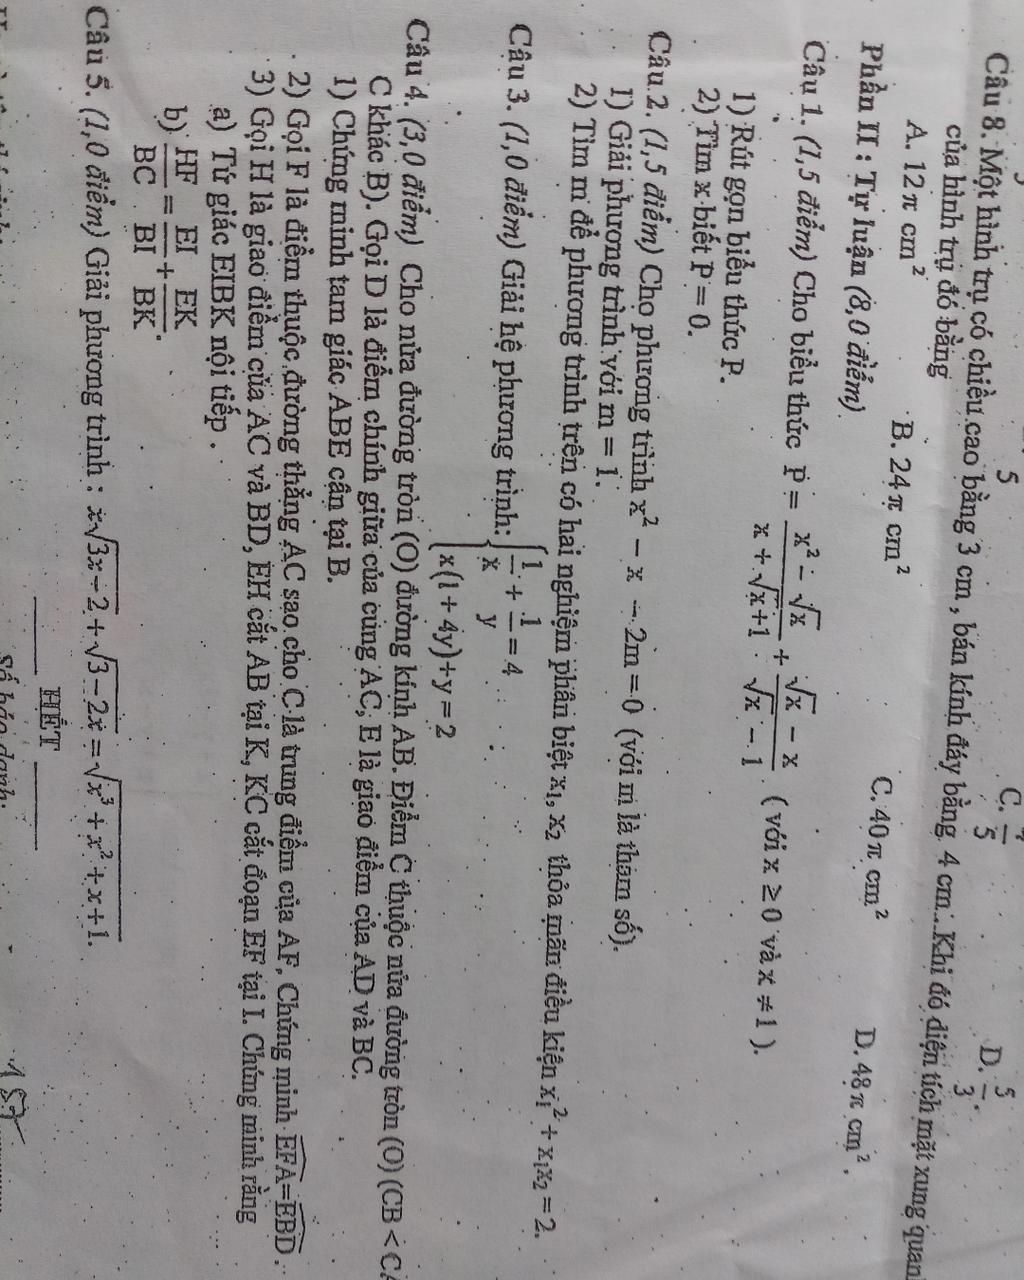 5
C. 5
D. 5/3.
Câu 8. Một hình trụ có chiều cao bằng 3 cm, bán kính đáy bằng 4 cm. Khi đó diện tích mặt xung quan
của hình trụ đó bằng
A. 12π cm² B. 24π cm² C. 40π cm² D. 48π cm².
Phần II : Tự luận (8,0 điểm)
Câu 1. (1,5 điểm) Cho biểu thức P = (x² − √x)/(x + √x + 1) + (√x − x)/(√x − 1) (với x ≥ 0 và x ≠ 1).
1) Rút gọn biểu thức P.
2) Tìm x biết P = 0.
Câu 2. (1,5 điểm) Cho phương trình x² − x − 2m = 0 (với m là tham số).
1) Giải phương trình với m = 1.
2) Tìm m để phương trình trên có hai nghiệm phân biệt x₁, x₂ thỏa mãn điều kiện x₁² + x₁x₂ = 2.
Câu 3. (1,0 điểm) Giải hệ phương trình: { 1/x + 1/y = 4
x(1 + 4y) + y = 2
Câu 4. (3,0 điểm) Cho nửa đường tròn (O) đường kính AB. Điểm C thuộc nửa đường tròn (O) (CB < CA
C khác B). Gọi D là điểm chính giữa của cung AC, E là giao điểm của AD và BC.
1) Chứng minh tam giác ABE cân tại B.
2) Gọi F là điểm thuộc đường thẳng AC sao cho C là trung điểm của AF. Chứng minh EFA = EBD.
3) Gọi H là giao điểm của AC và BD, EH cắt AB tại K, KC cắt đoạn EF tại I. Chứng minh rằng
a) Tứ giác EIBK nội tiếp.
b) HF/BC = EI/BI + EK/BK.
Câu 5. (1,0 điểm) Giải phương trình : x√(3x − 2) + √(3 − 2x) = √(x³ + x² + x + 1).
HẾT
Số báo danh: